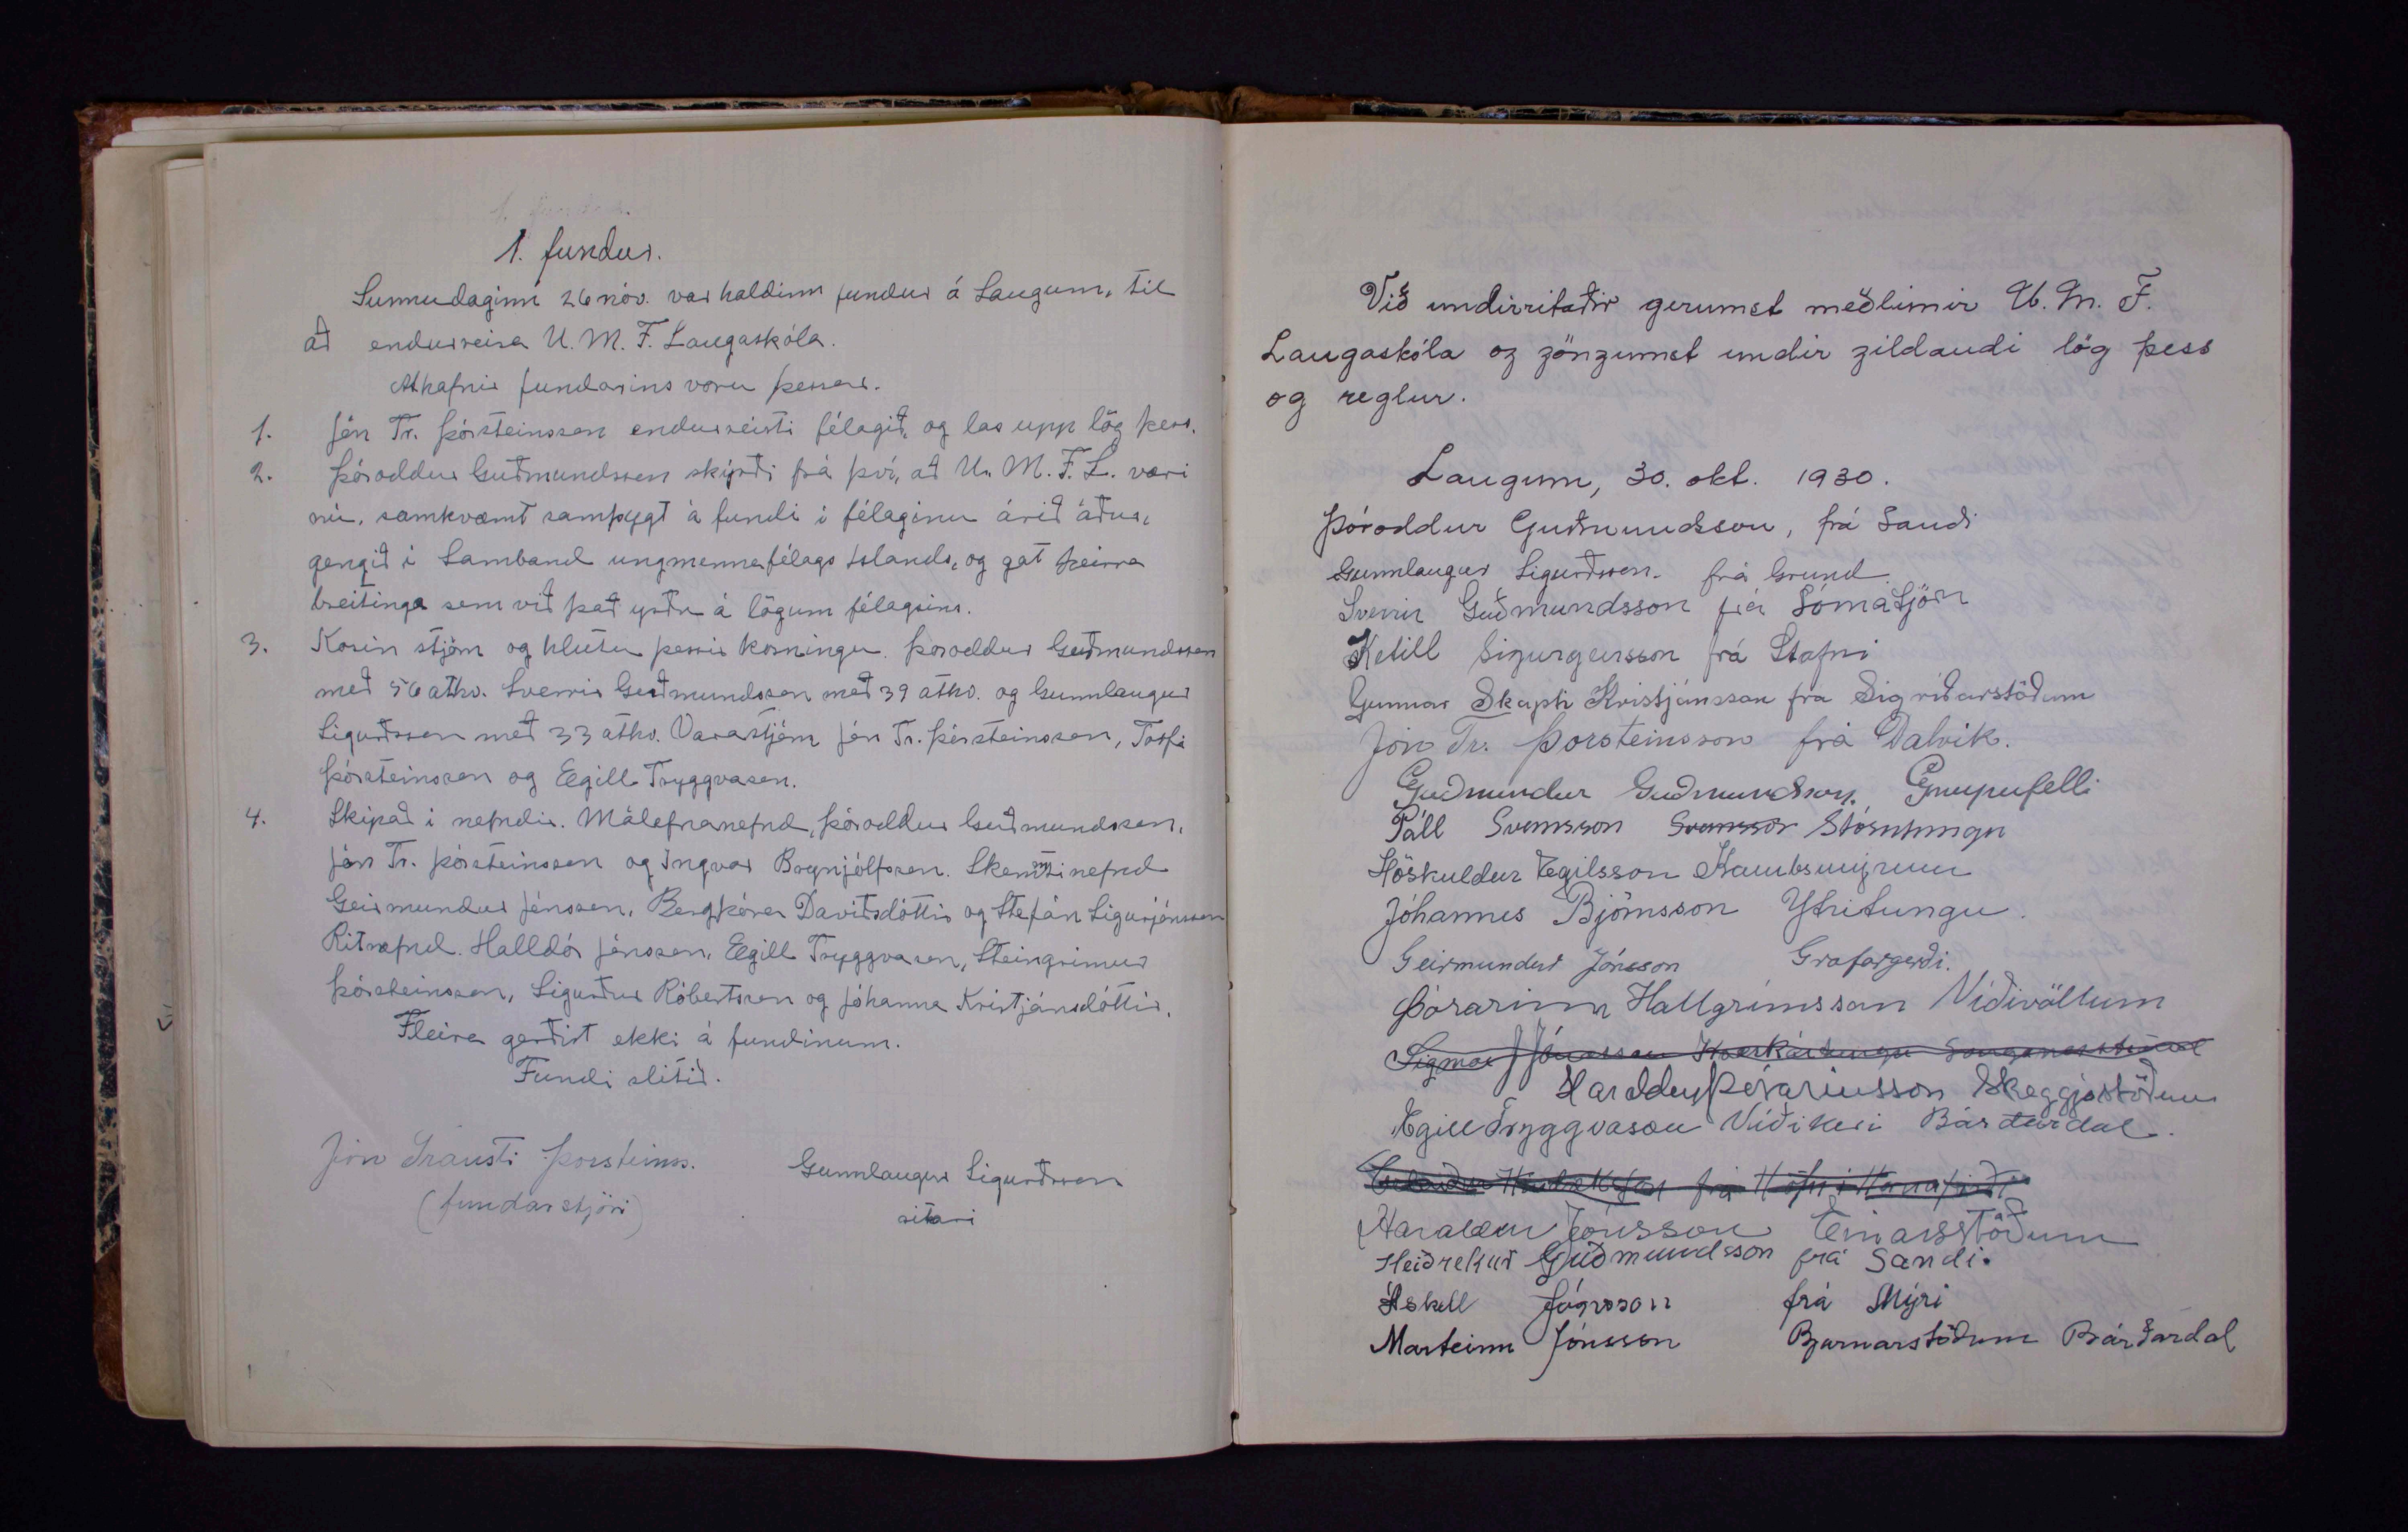 1. fundur.
Sunnudaginn 26 nóv. var haldinn fundur á Laugum, til
að endurreisa U. M. F. Laugaskóla.
Athafnir fundarins voru þessar.
1. Jón Tr. Þórsteinsson endurreisti félagið, og las upp lög þess.
2. Þóroddur Guðmundsson skýrði frá því, að U. M. F. L. væri
nú, samkvæmt samþygt á fundi í félaginu árið áður,
gengið í Samband ungmennafélags Íslands, og gat þeirra
breitinga sem við það yrðu á lögum félagsins.
3. Kosin stjórn og hlutu þessir kosningu. Þóroddur Guðmundsson
með 56 atkv. Sverrir Guðmundsson með 39 atkv. og Gunnlaugur
Sigurðsson með 33 atkv. Varastjórn Jón Tr. Þórsteinsson, Torfi
Þórsteinsson og Egill Tryggvason.
4. Skipað í nefndir. Málefnanefnd, Þóroddur Guðmundsson,
Jón Tr. Þórsteinsson og Ingvar Brynjólfsson. Skemtinefnd
Geirmundur Jónsson, Bergþóra Davíðsdóttir og Stefán Sigurjónsson
Ritnefnd. Halldór Jónsson, Egill Tryggvason, Steingrímur
Þórsteinsson, Sigurður Róbertsson og Jóhanna Kristjánsdóttir.
Fleira gerðist ekki á fundinum.
Fundi slitið.
Jón Trausti Þorsteinss. Gunnlaugur Sigurðsson
(fundarstjóri) ritari
Við undirritaðir gerumst meðlimir U. M. F.
Laugaskóla og göngumst undir gildandi lög þess
og reglur.
Laugum, 30. okt. 1930.
Þóroddur Guðmundsson, frá Sandi
Gunnlaugur Sigurðsson. frá Grund
Sverrir Guðmundsson frá Lómatjörn
Ketill Sigurgeirsson frá Stafni
Gunnar Skapti Kristjánsson frá Sigríðarstöðum
Jón Tr. Þorsteinsson frá Dalvík.
Guðmundur Guðmundsson. Gnúpufelli
Páll Sveinsson Sveinsson
Höskuldur Egilsson Kambsmýrum
Jóhannes Björnsson Ytritungu.
Geirmundur Jónsson Grafargerði.
Þórarinn Hallgrímsson Víðivöllum
Sigmar
Þórarinsson Skeggjastöðum
Egill Tryggvason Víðikeri Bárðardal.
frá Höfn í Hornafirði
Haraldur Jónsson Einarsstöðum
Heiðrekur Guðmundsson frá Sandi.
Áskell Jónsson frá Mýri
Marteinn Jónsson Bjarnarstöðum Bárðardal